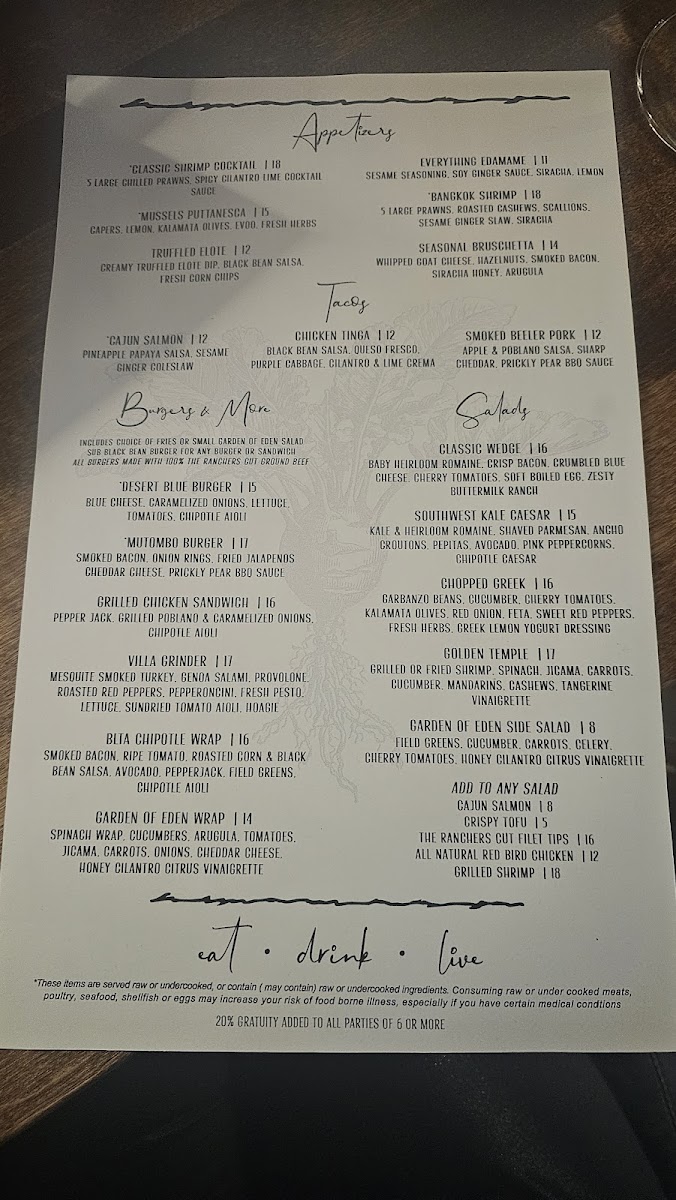 Appetizers
*CLASSIC SHRIMP COCKTAIL | 18
5 LARGE CHILLED PRAWNS, SPICY CILANTRO LIME COCKTAIL
SAUCE
*MUSSELS PUTTANESCA | 15
CAPERS, LEMON, KALAMATA OLIVES, EVOO, FRESH HERBS
TRUFFLED ELOTE | 12
CREAMY TRUFFLED ELOTE DIP, BLACK BEAN SALSA,
FRESH CORN CHIPS
EVERYTHING EDAMAME | 11
SESAME SEASONING, SOY GINGER SAUCE, SIRACHA, LEMON
*BANGKOK SHRIMP | 18
5 LARGE PRAWNS, ROASTED CASHEWS, SCALLIONS,
SESAME GINGER SLAW, SIRACHA
SEASONAL BRUSCHETTA | 14
WHIPPED GOAT CHEESE, HAZELNUTS, SMOKED BACON,
SIRACHA HONEY, ARUGULA
Tacos
*CAJUN SALMON | 12
PINEAPPLE PAPAYA SALSA, SESAME
GINGER COLESLAW
CHICKEN TINGA | 12
BLACK BEAN SALSA, QUESO FRESCO,
PURPLE CABBAGE, CILANTRO & LIME CREMA
SMOKED BEELER PORK | 12
APPLE & POBLANO SALSA, SHARP
CHEDDAR, PRICKLY PEAR BBQ SAUCE
Burgers & More
INCLUDES CHOICE OF FRIES OR SMALL GARDEN OF EDEN SALAD
SUB BLACK BEAN BURGER FOR ANY BURGER OR SANDWICH
ALL BURGERS MADE WITH 100% THE RANCHERS CUT GROUND BEEF
*DESERT BLUE BURGER | 15
BLUE CHEESE, CARAMELIZED ONIONS, LETTUCE,
TOMATOES, CHIPOTLE AIOLI
*MUTOMBO BURGER | 17
SMOKED BACON, ONION RINGS, FRIED JALAPENOS
CHEDDAR CHEESE, PRICKLY PEAR BBQ SAUCE
GRILLED CHICKEN SANDWICH | 16
PEPPER JACK, GRILLED POBLANO & CARAMELIZED ONIONS,
CHIPOTLE AIOLI
VILLA GRINDER | 17
MESQUITE SMOKED TURKEY, GENOA SALAMI, PROVOLONE,
ROASTED RED PEPPERS, PEPPERONCINI, FRESH PESTO,
LETTUCE, SUNDRIED TOMATO AIOLI, HOAGIE
BLTA CHIPOTLE WRAP | 16
SMOKED BACON, RIPE TOMATO, ROASTED CORN & BLACK
BEAN SALSA, AVOCADO, PEPPERJACK, FIELD GREENS,
CHIPOTLE AIOLI
GARDEN OF EDEN WRAP | 14
SPINACH WRAP, CUCUMBERS, ARUGULA, TOMATOES,
JICAMA, CARROTS, ONIONS, CHEDDAR CHEESE,
HONEY CILANTRO CITRUS VINAIGRETTE
Salads
CLASSIC WEDGE | 16
BABY HEIRLOOM ROMAINE, CRISP BACON, CRUMBLED BLUE
CHEESE, CHERRY TOMATOES, SOFT BOILED EGG, ZESTY
BUTTERMILK RANCH
SOUTHWEST KALE CAESAR | 15
KALE & HEIRLOOM ROMAINE, SHAVED PARMESAN, ANCHO
CROUTONS, PEPITAS, AVOCADO, PINK PEPPERCORNS,
CHIPOTLE CAESAR
CHOPPED GREEK | 16
GARBANZO BEANS, CUCUMBER, CHERRY TOMATOES,
KALAMATA OLIVES, RED ONION, FETA, SWEET RED PEPPERS,
FRESH HERBS, GREEK LEMON YOGURT DRESSING
GOLDEN TEMPLE | 17
GRILLED OR FRIED SHRIMP, SPINACH, JICAMA, CARROTS,
CUCUMBER, MANDARINS, CASHEWS, TANGERINE
VINAIGRETTE
GARDEN OF EDEN SIDE SALAD | 8
FIELD GREENS, CUCUMBER, CARROTS, CELERY,
CHERRY TOMATOES, HONEY CILANTRO CITRUS VINAIGRETTE
ADD TO ANY SALAD
CAJUN SALMON | 8
CRISPY TOFU | 5
THE RANCHERS CUT FILET TIPS | 16
ALL NATURAL RED BIRD CHICKEN | 12
GRILLED SHRIMP | 18
eat • drink • live
*These items are served raw or undercooked, or contain ( may contain) raw or undercooked ingredients. Consuming raw or under cooked meats,
poultry, seafood, shellfish or eggs may increase your risk of food borne illness, especially if you have certain medical condtions
20% GRATUITY ADDED TO ALL PARTIES OF 6 OR MORE